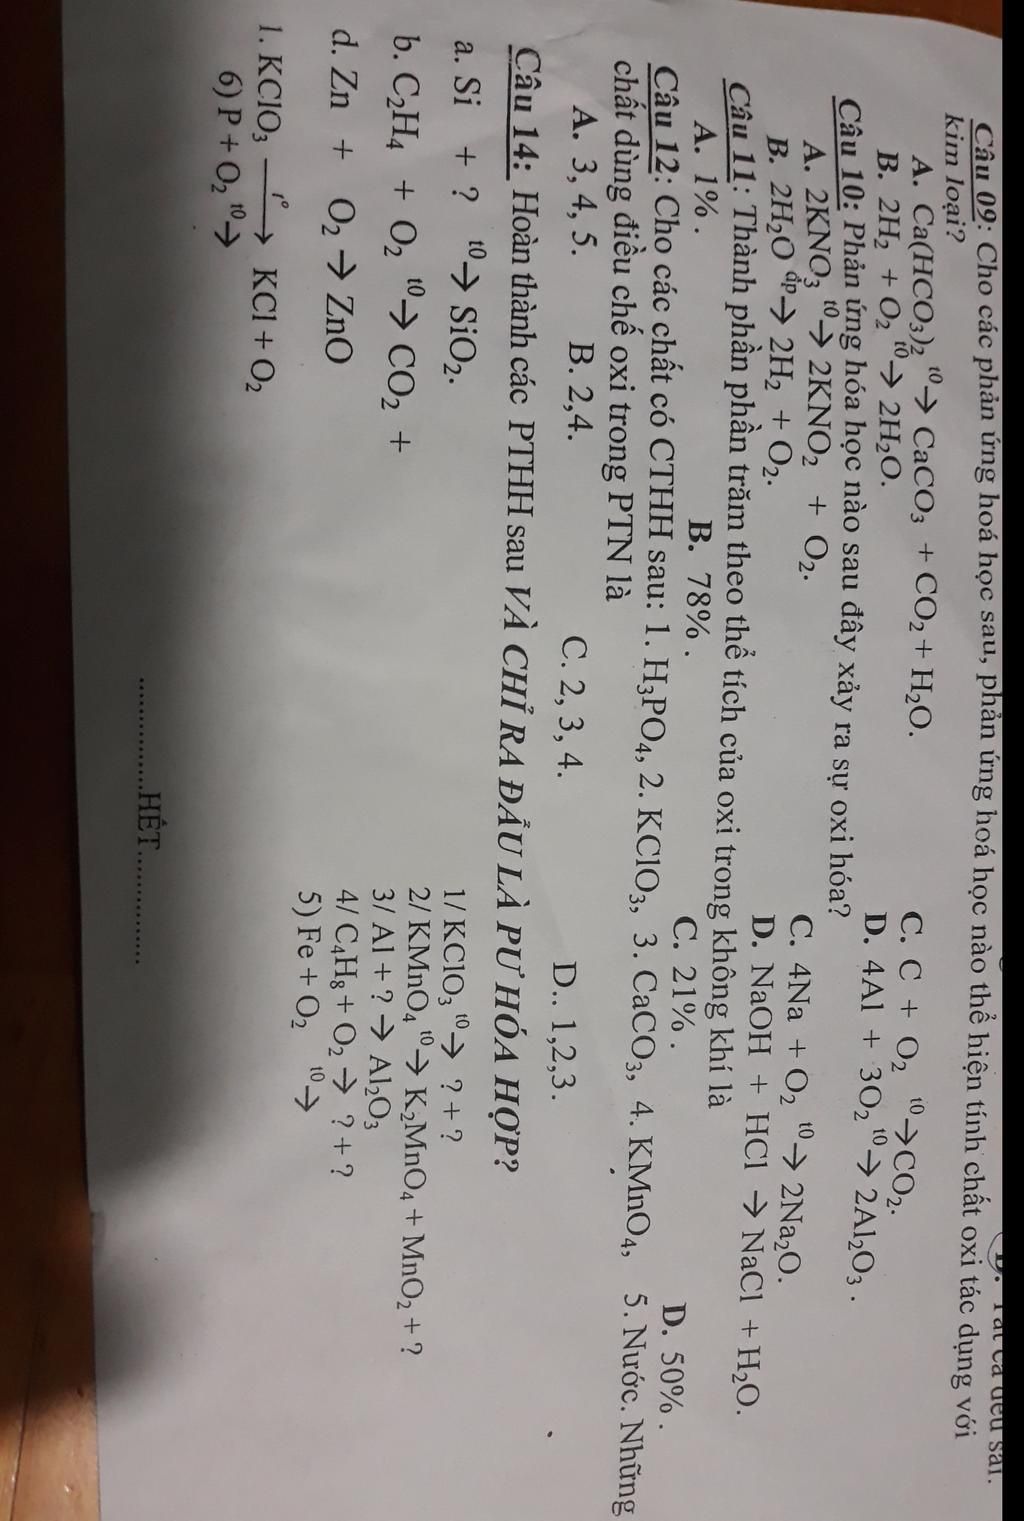 D. Tất cả đều sai.
Câu 09: Cho các phản ứng hoá học sau, phản ứng hoá học nào thể hiện tính chất oxi tác dụng với
kim loại?
A. Ca(HCO₃)₂ t0→ CaCO₃ + CO₂ + H₂O. C. C + O₂ t0→CO₂.
B. 2H₂ + O₂ t0→ 2H₂O. D. 4Al + 3O₂ t0→ 2Al₂O₃ .
Câu 10: Phản ứng hóa học nào sau đây xảy ra sự oxi hóa?
A. 2KNO₃ t0→ 2KNO₂ + O₂. C. 4Na + O₂ t0→ 2Na₂O.
B. 2H₂O đp→ 2H₂ + O₂. D. NaOH + HCl → NaCl + H₂O.
Câu 11: Thành phần phần trăm theo thể tích của oxi trong không khí là
A. 1% . B. 78% . C. 21% . D. 50% .
Câu 12: Cho các chất có CTHH sau: 1. H₃PO₄, 2. KClO₃, 3. CaCO₃, 4. KMnO₄, 5. Nước. Những
chất dùng điều chế oxi trong PTN là
A. 3, 4, 5. B. 2,4. C. 2, 3, 4. D.. 1,2,3.
Câu 14: Hoàn thành các PTHH sau VÀ CHỈ RA ĐÂU LÀ PƯ HÓA HỢP?
a. Si + ? t0→ SiO₂. 1/ KClO₃ t0→ ? + ?
b. C₂H₄ + O₂ t0→ CO₂ + 2/ KMnO₄ t0→ K₂MnO₄ + MnO₂ + ?
3/ Al + ? → Al₂O₃
d. Zn + O₂ → ZnO 4/ C₄H₈ + O₂ → ? + ?
5) Fe + O₂ t0→
1. KClO₃ t° → KCl + O₂
6) P + O₂ t0→
..............HẾT..............